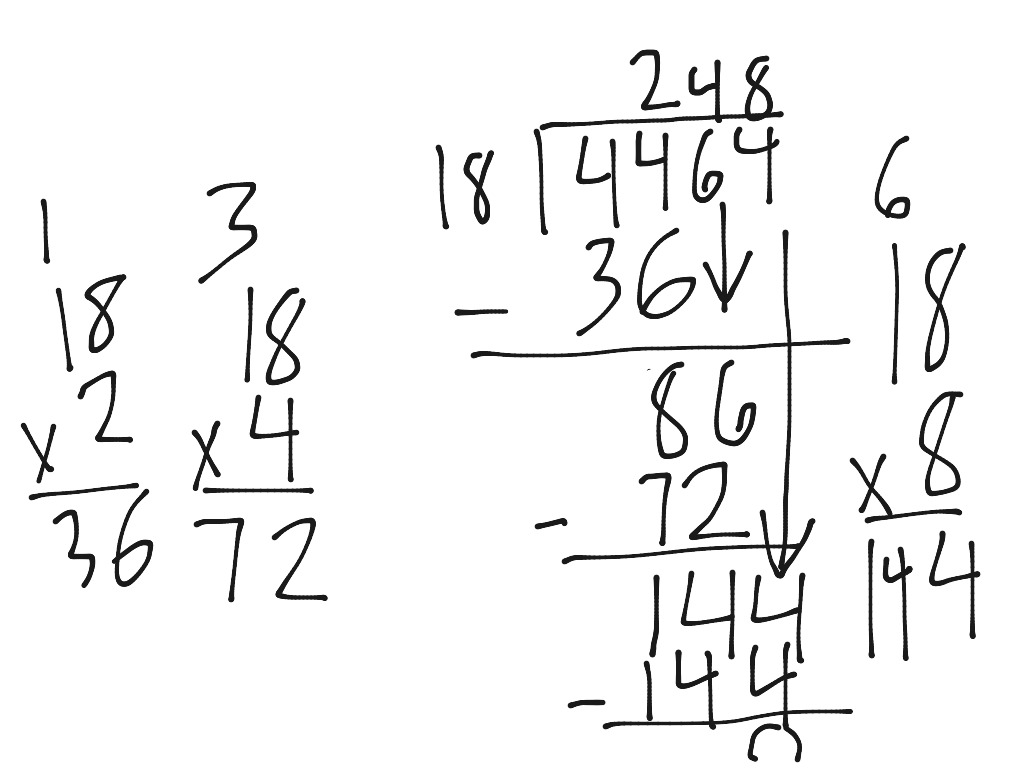 248
18 4464
- 36
86
- 72
144
- 144
0
1
18
x 2
36
3
18
x 4
72
6
18
x 8
144